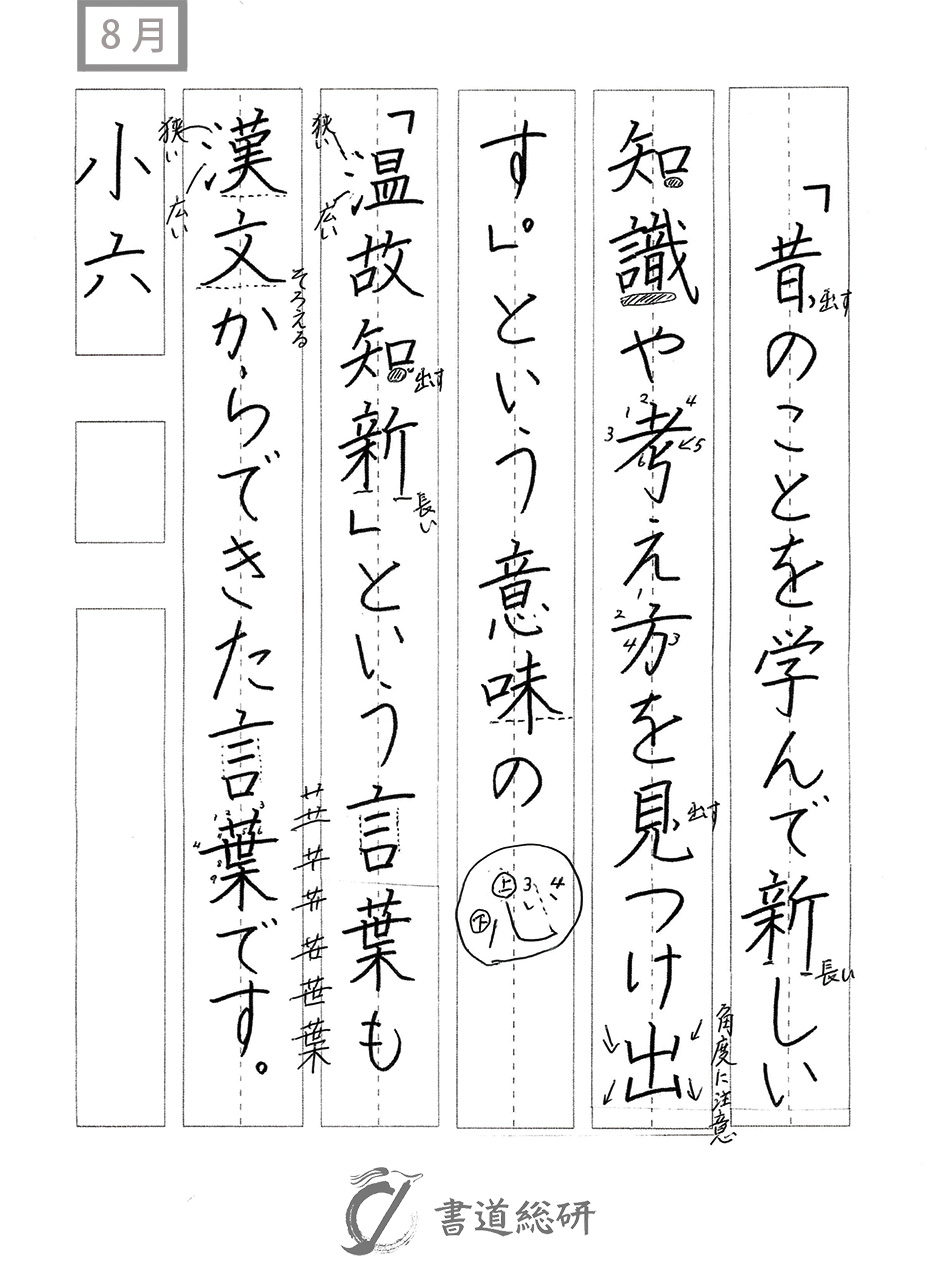 8月
「昔のことを学んで新しい
出す
長い
知識や考え方を見つけ出
1 2 3 4 5 6
1 2 3 4
出す
角度に注意
す。」という意味の
上 3 4
下
「温故知新」という言葉も
狭い
広い
出す
長い
漢文からできた言葉です。
狭い
広い
そろえる
小六
書道総研